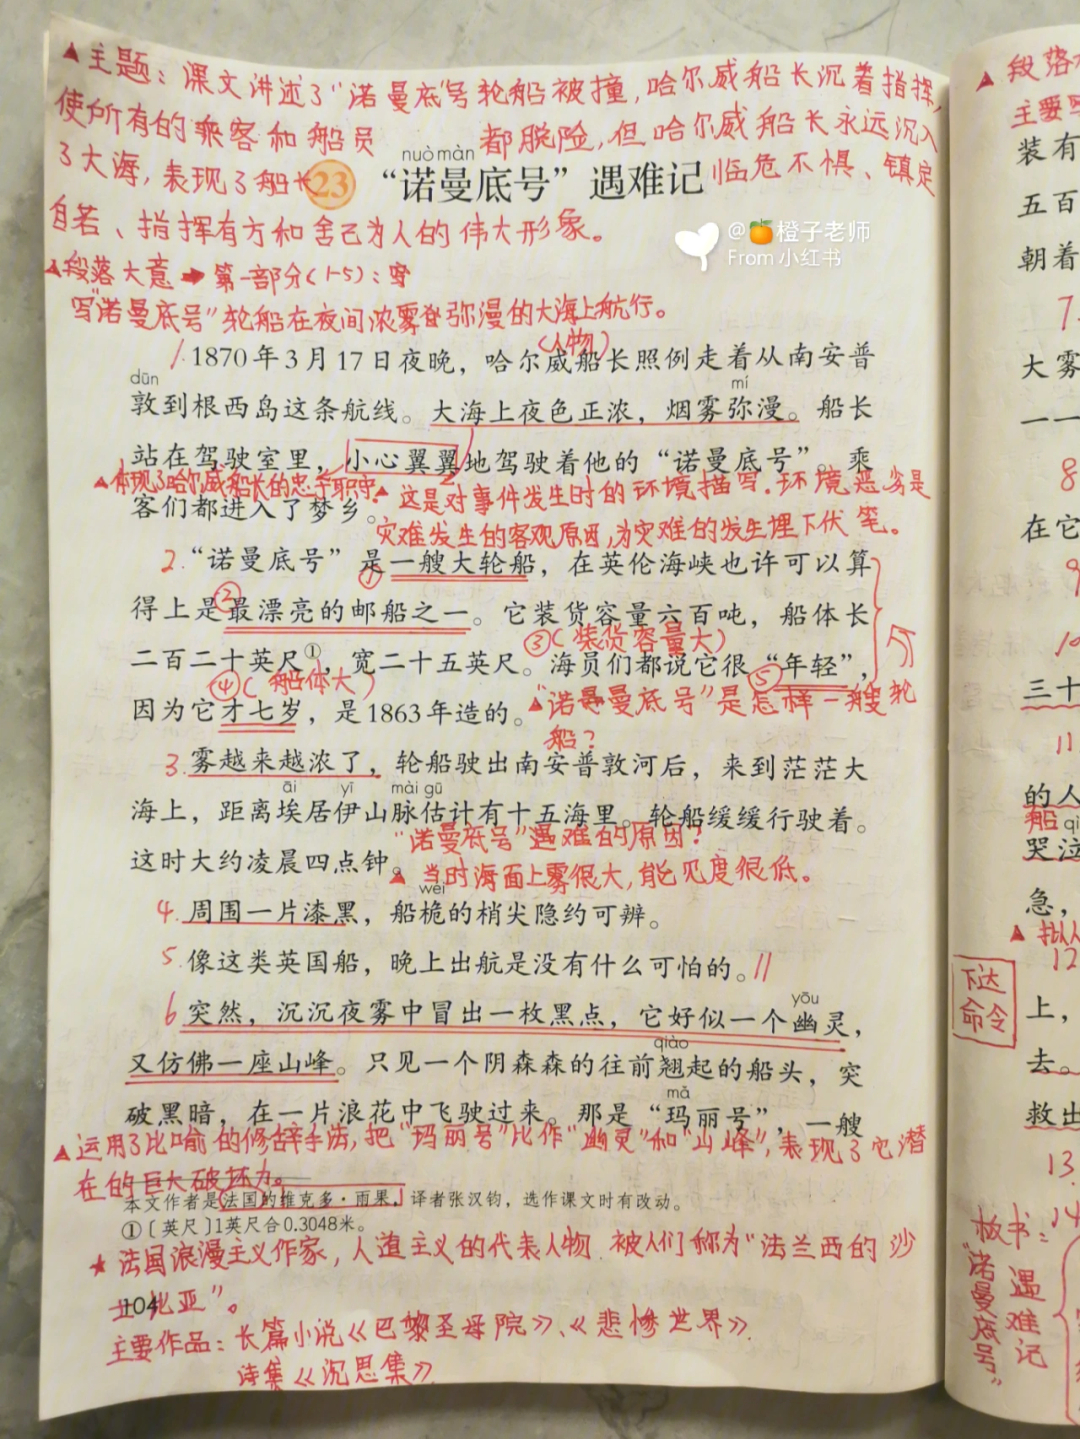 ▲主题：课文讲述了“诺曼底”号轮船被撞，哈尔威船长沉着指挥，
使所有的乘客和船员 都脱险，但哈尔威船长永远沉入
nuò màn
了大海，表现了船长 临危不惧、镇定
23 “诺曼底号”遇难记
自若、指挥有方和舍己为人的伟大形象。
@🍊橙子老师
From 小红书
▲段落大意➡第一部分(1-5)：
写“诺曼底号”轮船在夜间浓雾弥漫的大海上航行。
(人物)
1. 1870年3月17日夜晚，哈尔威船长照例走着从南安普
dūn mí
敦到根西岛这条航线。大海上夜色正浓，烟雾弥漫。船长
站在驾驶室里，小心翼翼地驾驶着他的“诺曼底号”。乘
▲体现了哈尔威船长的忠于职守
▲这是对事件发生时的环境描写.环境恶劣是
客们都进入了梦乡。
灾难发生的客观原因,为灾难的发生埋下伏笔。
2. “诺曼底号”是一艘大轮船，在英伦海峡也许可以算
① ②
得上是最漂亮的邮船之一。它装货容量六百吨，船体长
③(装货容量大)
二百二十英尺①，宽二十五英尺。海员们都说它很“年轻”，
④(船体大) ⑤
因为它才七岁，是1863年造的。
▲“诺曼底号”是怎样一艘轮
船？
3. 雾越来越浓了，轮船驶出南安普敦河后，来到茫茫大
āi yī mài gū
海上，距离埃居伊山脉估计有十五海里。轮船缓缓行驶着。
“诺曼底号”遇难的原因？
这时大约凌晨四点钟。
▲当时海面上雾很大，能见度很低。
wéi
4. 周围一片漆黑，船桅的梢尖隐约可辨。
5. 像这类英国船，晚上出航是没有什么可怕的。//
yōu
6 突然，沉沉夜雾中冒出一枚黑点，它好似一个幽灵，
qiào
又仿佛一座山峰。只见一个阴森森的往前翘起的船头，突
mǎ
破黑暗，在一片浪花中飞驶过来。那是“玛丽号”，一艘
▲运用了比喻的修辞手法,把“玛丽号”比作“幽灵”和“山峰”,表现了它潜
在的巨大破坏力。
本文作者是法国的维克多·雨果，译者张汉钧，选作课文时有改动。
①〔英尺〕1英尺合0.3048米。
★法国浪漫主义作家，人道主义的代表人物.被人们称为“法兰西的沙
士比亚”。
104
主要作品：长篇小说《巴黎圣母院》、《悲惨世界》.
诗集《沉思集》
▲段落
主要
装有
五百
朝着
7
大雾
一一
8
在它
9
10
三十
11
的人
船
qì
哭泣
急，
▲
12
下达
命令
上，
去。
救出
13.
14
板书：
“诺曼底号”
遇难记